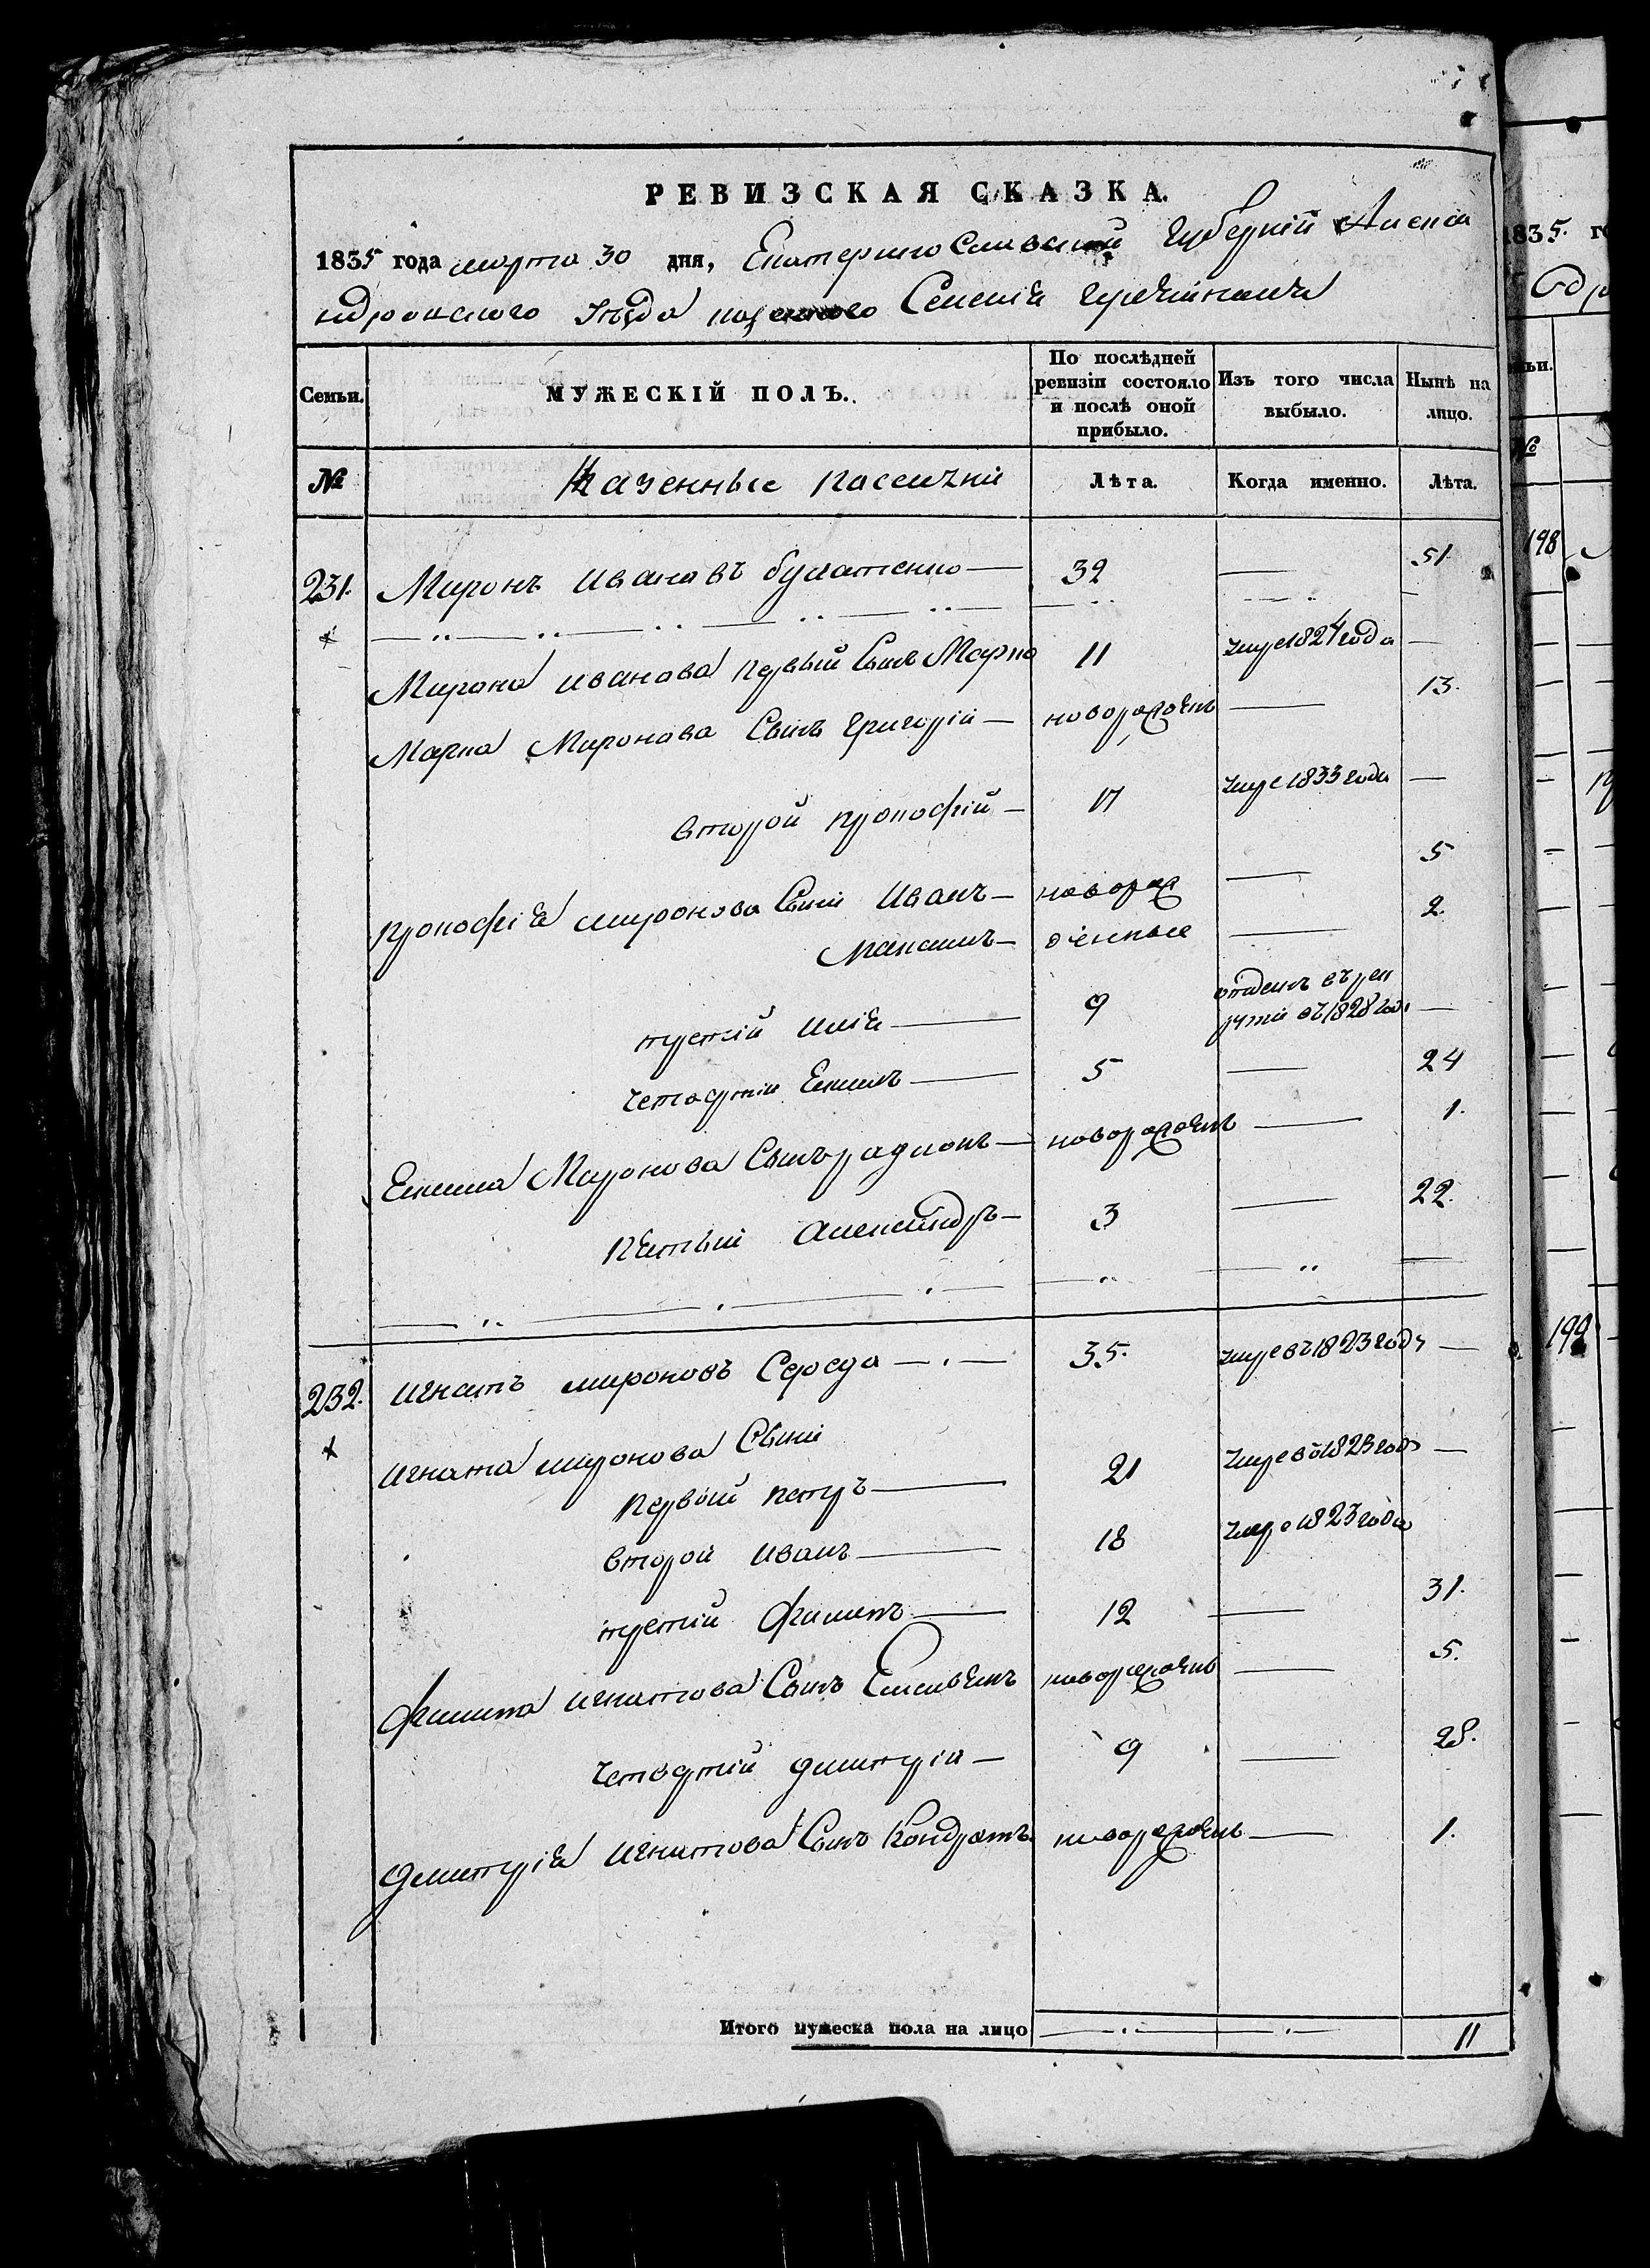 РЕВИЗСКАЯ СКАЗКА.
1835 года марта 30 дня, Екатеринославской Губерніи Алекса
ндровского уѣзда казенного Селенія
Семьи. МУЖЕСКІЙ ПОЛЪ. По послѣдней ревизіи состояло и послѣ оной прибыло. Изъ того числа выбыло. Нынѣ на лицо.
№ Казенные Лѣта. Когда именно. Лѣта.
231. Миронъ Ивановъ булатенко — 32 — 51.
Мирона Иванова первый Сынъ Марко 11 умре 1824 года —
Марка Миронова Сынъ Григорій — новорожденъ — 13.
второй прокофій — 17 умре 1833 года —
прокофія миронова Сыни Иванъ — новорож — 5
Максимъ — денные — 2.
третій илія — 9 отданъ въ рек
руты въ 1828 году —
четвертій Екимъ — 5 — 24
Екима Миронова Сынъ радионъ — новорожденъ — 1.
Пятый александръ — 3 — 22.
232. игнатъ мироновъ Середа — 35. умре въ 1823 году —
игната миронова Сыни
первый петръ — 21 умре въ 1823 году —
второй иванъ — 18 умре 1823 года
третій филипъ — 12 — 31.
филипа игнатова Сынъ новорожденъ — 5.
четвертій дмитрій — 9 — 28.
дмитрія игнатова Сынъ Кондратъ новорожденъ — 1.
Итого мужеска пола на лицо 11
1835. го
198
№
199